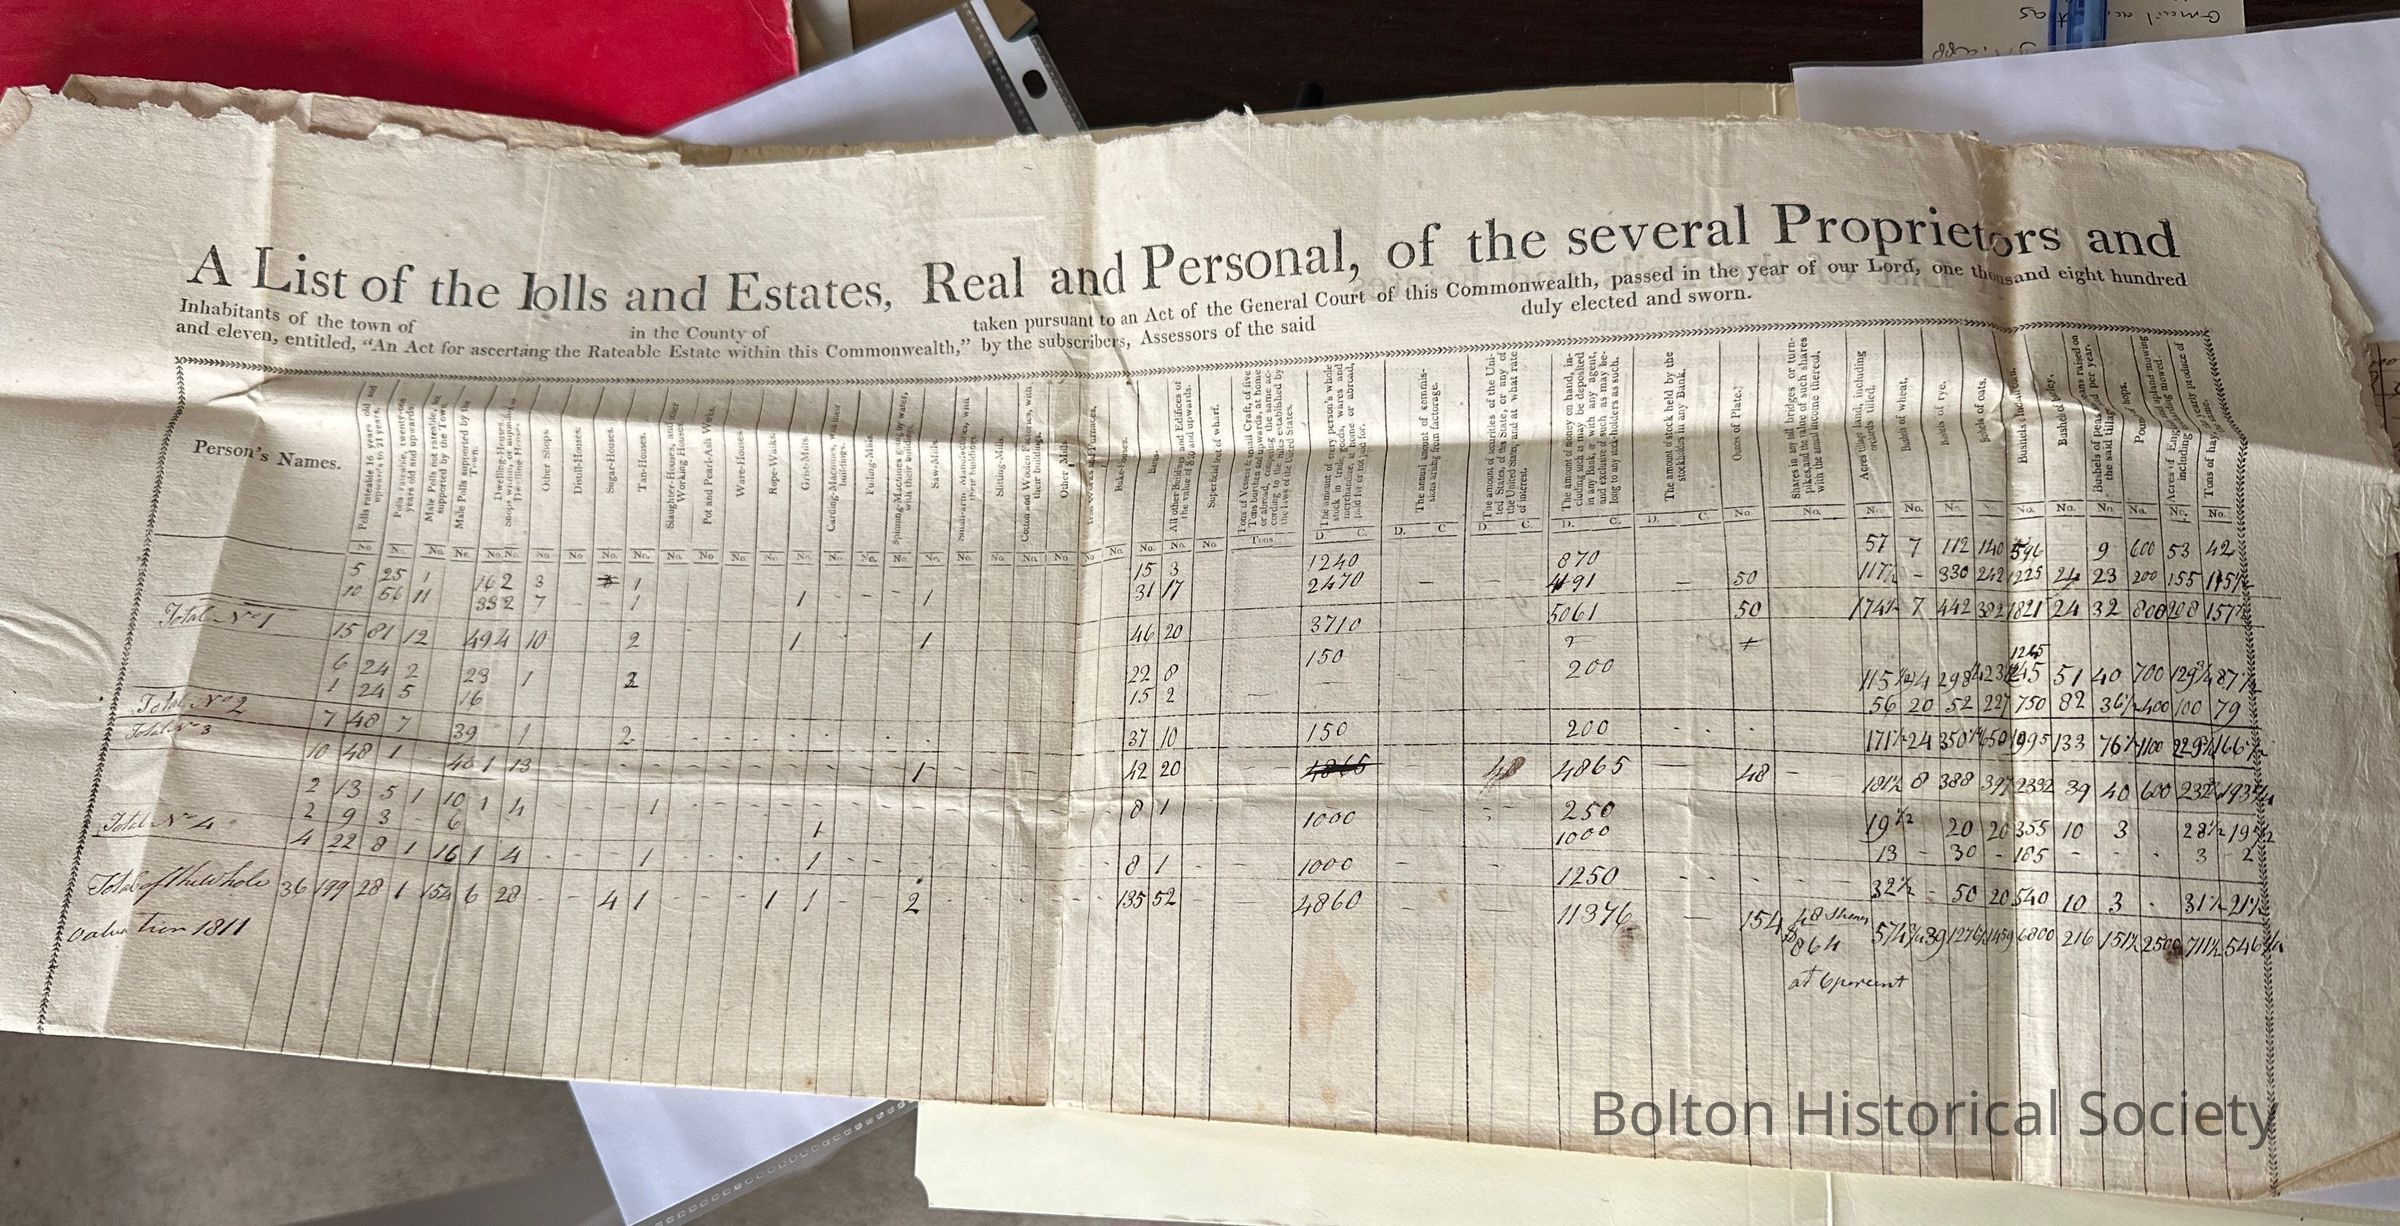 A List of the Polls and Estates, Real and Personal, of the several Proprietors and
Inhabitants of the town of in the County of taken pursuant to an Act of the General Court of this Commonwealth, passed in the year of our Lord, one thousand eight hundred
and eleven, entitled, "An Act for ascerting the Rateable Estate within this Commonwealth," by the subscribers, Assessors of the said duly elected and sworn.
Person's Names.
Polls rateable 16 years old and upwards to 21 years.
Polls rateable, twenty-one years old and upwards.
Male Polls not rateable, supported by the Town.
Male Polls supported by the Town.
Dwelling-Houses.
Other Shops.
Distill-Houses.
Sugar-Houses.
Tan-Houses.
Slaughter-Houses, and other Working Houses.
Pot and Pearl-Ash Works.
Ware-Houses.
Rope-Walks.
Grist-Mills.
Carding-Machines, with their buildings.
Fulling-Mills.
Spinning-Machines going by water, with their buildings.
Saw-Mills.
Small-arm Manufactories, with their buildings.
Slitting-Mills.
Cotton and Woolen Factories, with their buildings.
Other Mills.
Iron Works and Furnaces.
Bake-Houses.
Barns.
All other Buildings and Edifices of the value of $20 and upwards.
Superficial feet of wharf.
Tons of Vessels & small Craft, of five Tons burthen and upwards, at home or abroad, computing the same according to the rules established by the laws of the United States.
The amount of every person's whole stock in trade, goods, wares and merchandize, at home or abroad, paid for or not paid for.
The annual amount of commissions arising from factorage.
The amount of securities of the United States, of this State, or any of the United States, and at what rate of interest.
The amount of money on hand, including such as may be deposited in any Bank, or with any agent, and exclusive of such as may belong to any stock-holders as such.
The amount of stock held by the stockholders in any Bank.
Ounces of Plate.
Shares in any toll bridges or turnpikes, and the value of such shares with the annual income thereof.
Acres tillage land, including orchards tilled.
Bushels of wheat.
Bushels of rye.
Bushels of oats.
Bushels Indian corn.
Bushels of barley.
Bushels of peas and beans raised on the said tillage land per year.
Pounds of hops.
Tons of hay
5 25 1 16 2 3 1 15 3 1240 870 57 7 112 140 596 9 600 53 42
10 56 11 33 2 7 1 1 1 31 17 2470 4191 50 117½ - 330 242 1225 24 23 200 155 115½
Total No 1 15 81 12 49 4 10 2 1 1 46 20 3710 5061 50 174½ 7 442 382 1821 24 32 800 208 157½
6 24 2 23 1 2 22 8 150 200 51 40 700
1 24 5 16 15 2 56 20 52 227 750 82 36½ 400 100 79
Total No 2 7 48 7 39 1 2 37 10 150 200 171½ 24 1995 133 76½ 1100
Total No 3 10 48 1 1 13 1 42 20 4865 48 181½ 8 388 397 2332 39 40 600
2 13 5 1 10 1 4 1 8 1 250 19½ 20 20 355 10 3 28½
2 9 3 6 1 1000 1000 13 - 30 - 185 3 2
Total No 4 4 22 8 1 16 1 4 1 1 8 1 1000 1250 32½ - 50 20 540 10 3 31½ 21½
Total of the whole 36 199 28 1 154 6 28 4 1 1 1 2 135 52 4860 11376 154 48 Shares 39 6800 216 151½ 2500 711½
valuation 1811 $864
at 6 percent
Bolton Historical Society